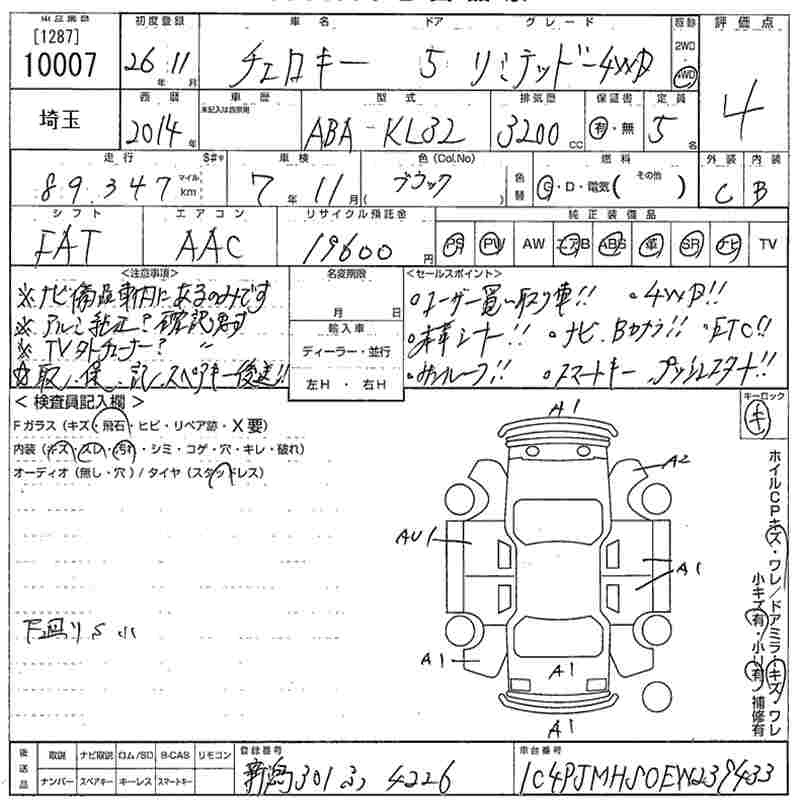 [1287]
10007
初度登録 車名 ドア グレード 駆動 評価点
26年 11月 チェロキー 5 リミテッド 4WD
2WD
4WD
4
埼玉
西暦 車歴 型式 排気歴 保証書 定員
未記入は自家用
2014年 ABA-KL32 3200cc 有・無 5名
走行 S#* 車検 色(Col.No) 燃料 外装 内装
89,347 マイル km 7年 11月 ブラック 色替 G・D・電気(その他) C B
シフト エアコン リサイクル預託金 純正装備品
FAT AAC 19600円 PS PW AW エアB ABS 革 SR ナビ TV
<注意事項> 名変期限 <セールスポイント>
※ナビ備品車内にあるのみです
※アルミ純正?確認要す
※TV外チューナー? 〃
※取.保.記.スペアキー後送!!
月 日
輸入車
ディーラー・並行
左H・右H
○ユーザー買い取り車!! ○4WD!!
○本革シート!! ○ナビ.Bカメラ!! ○ETC!!
○サンルーフ!! ○スマートキー プッシュスタート!!
<検査員記入欄>
キーロック
キ
Fガラス(キズ・飛石・ヒビ・リペア跡・X要)
内装(キズ・スレ・汚れ・シミ・コゲ・穴・キレ・破れ)
オーディオ(無し・穴)/タイヤ(スタッドレス)
下廻りS小
A1
A2
AU1
A1
A1
A1
A1
ホイルCPキズ・ワレ/ドアミラーキズ・ワレ
小キズ有・小U有・補修有
後送品 取説 ナビ取説 ロム/SD B-CAS リモコン
ナンバー スペアキー キーレス スマートキー
登録番号 車台番号
新潟301 4226 1C4PJMHS0EW239433